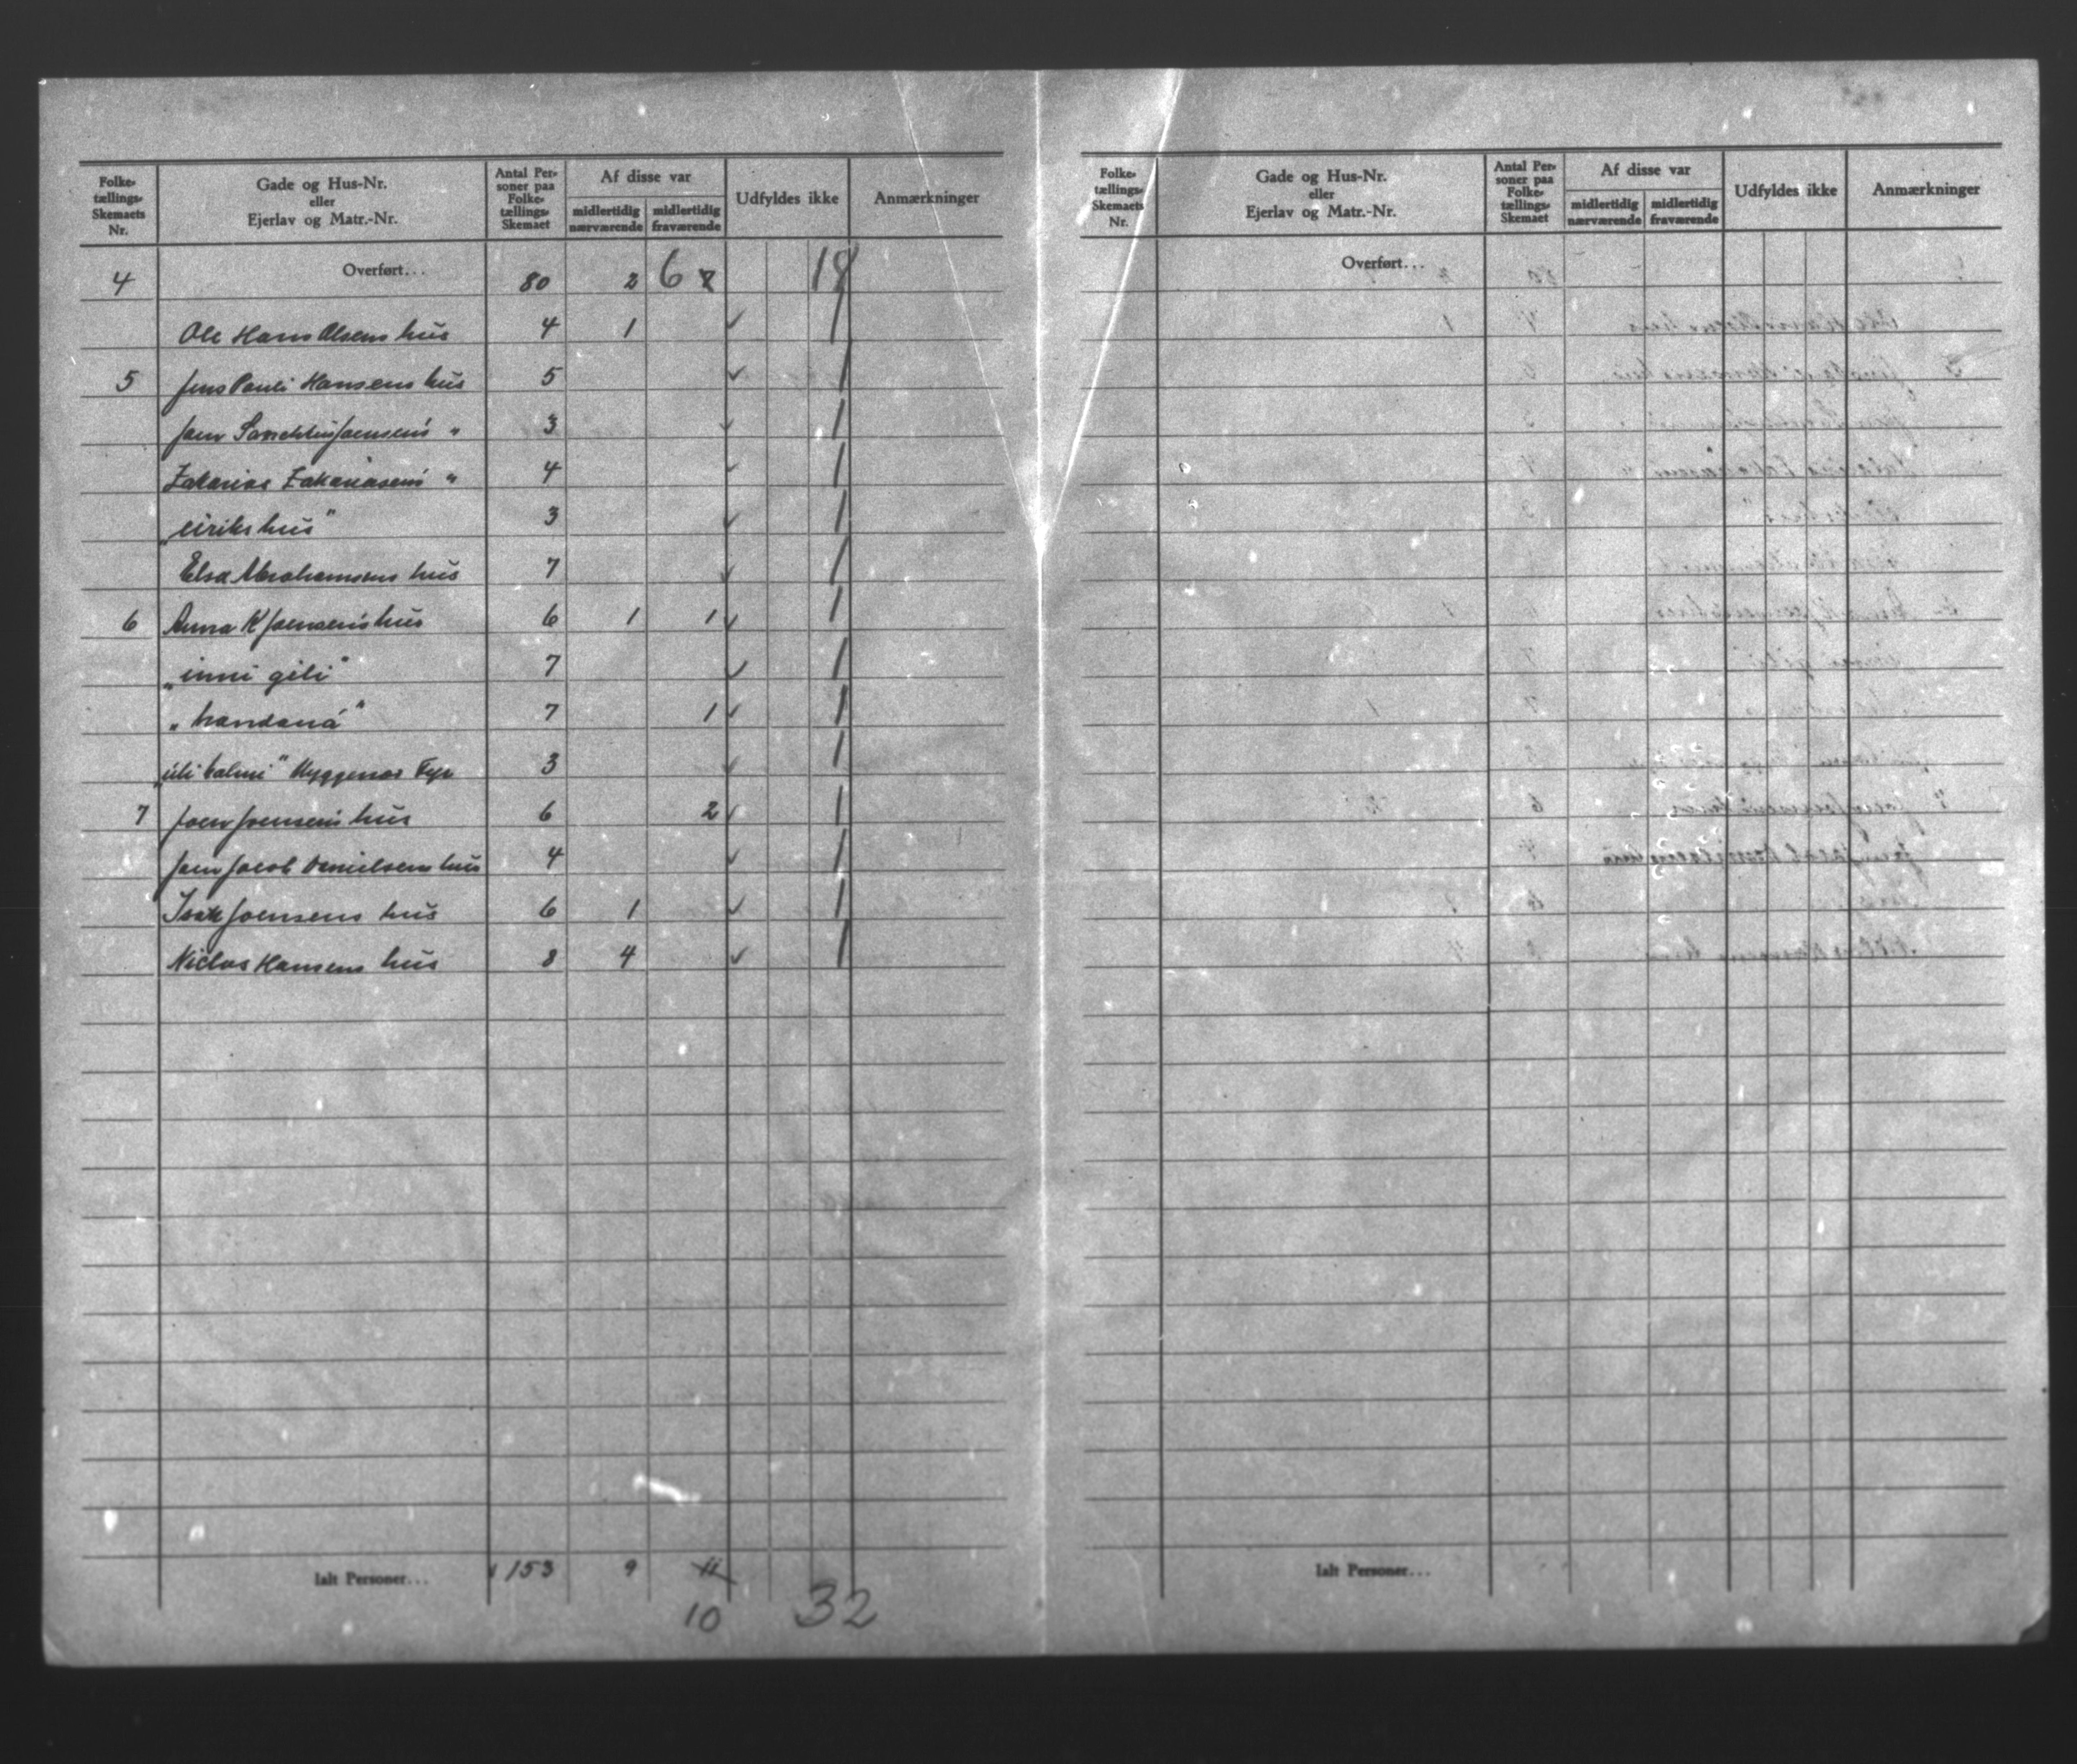 Folke-tællings-Skemaets Nr. | Gade og Hus-Nr. eller Ejerlav og Matr.-Nr. | Antal Per-soner paa Folke-tællings-Skemaet | Af disse var midlertidig nærværende | midlertidig fraværende | Udfyldes ikke | Anmærkninger
4 Overført... 80 2 6 18
Ole Hans Olsens hús 4 1 ✓ 1
5 Jens Pauli Hansens hús 5 ✓ 1
Joen Joensens " 3 ✓ 1
Zakarias Zakariasens " 4 ✓ 1
"eirikshús" 3 ✓ 1
Elsa Abrahamsens hús 7 ✓ 1
6 Anna K Joensens hús 6 1 1 ✓ 1
"inni gili" 7 ✓ 1
"handaná" 7 1 ✓ 1
"úti Fyr 3 ✓ 1
7 Joen Joensens hús 6 2 ✓ 1
Joen Jacob Danielsens hús 4 ✓ 1
Isak Joensens hús 6 1 ✓ 1
Niclas Hansens hús 8 4 ✓ 1
Ialt Personer... 153 9 11
10 32
Folke-tællings-Skemaets Nr. | Gade og Hus-Nr. eller Ejerlav og Matr.-Nr. | Antal Per-soner paa Folke-tællings-Skemaet | Af disse var midlertidig nærværende | midlertidig fraværende | Udfyldes ikke | Anmærkninger
Overført...
Ialt Personer...